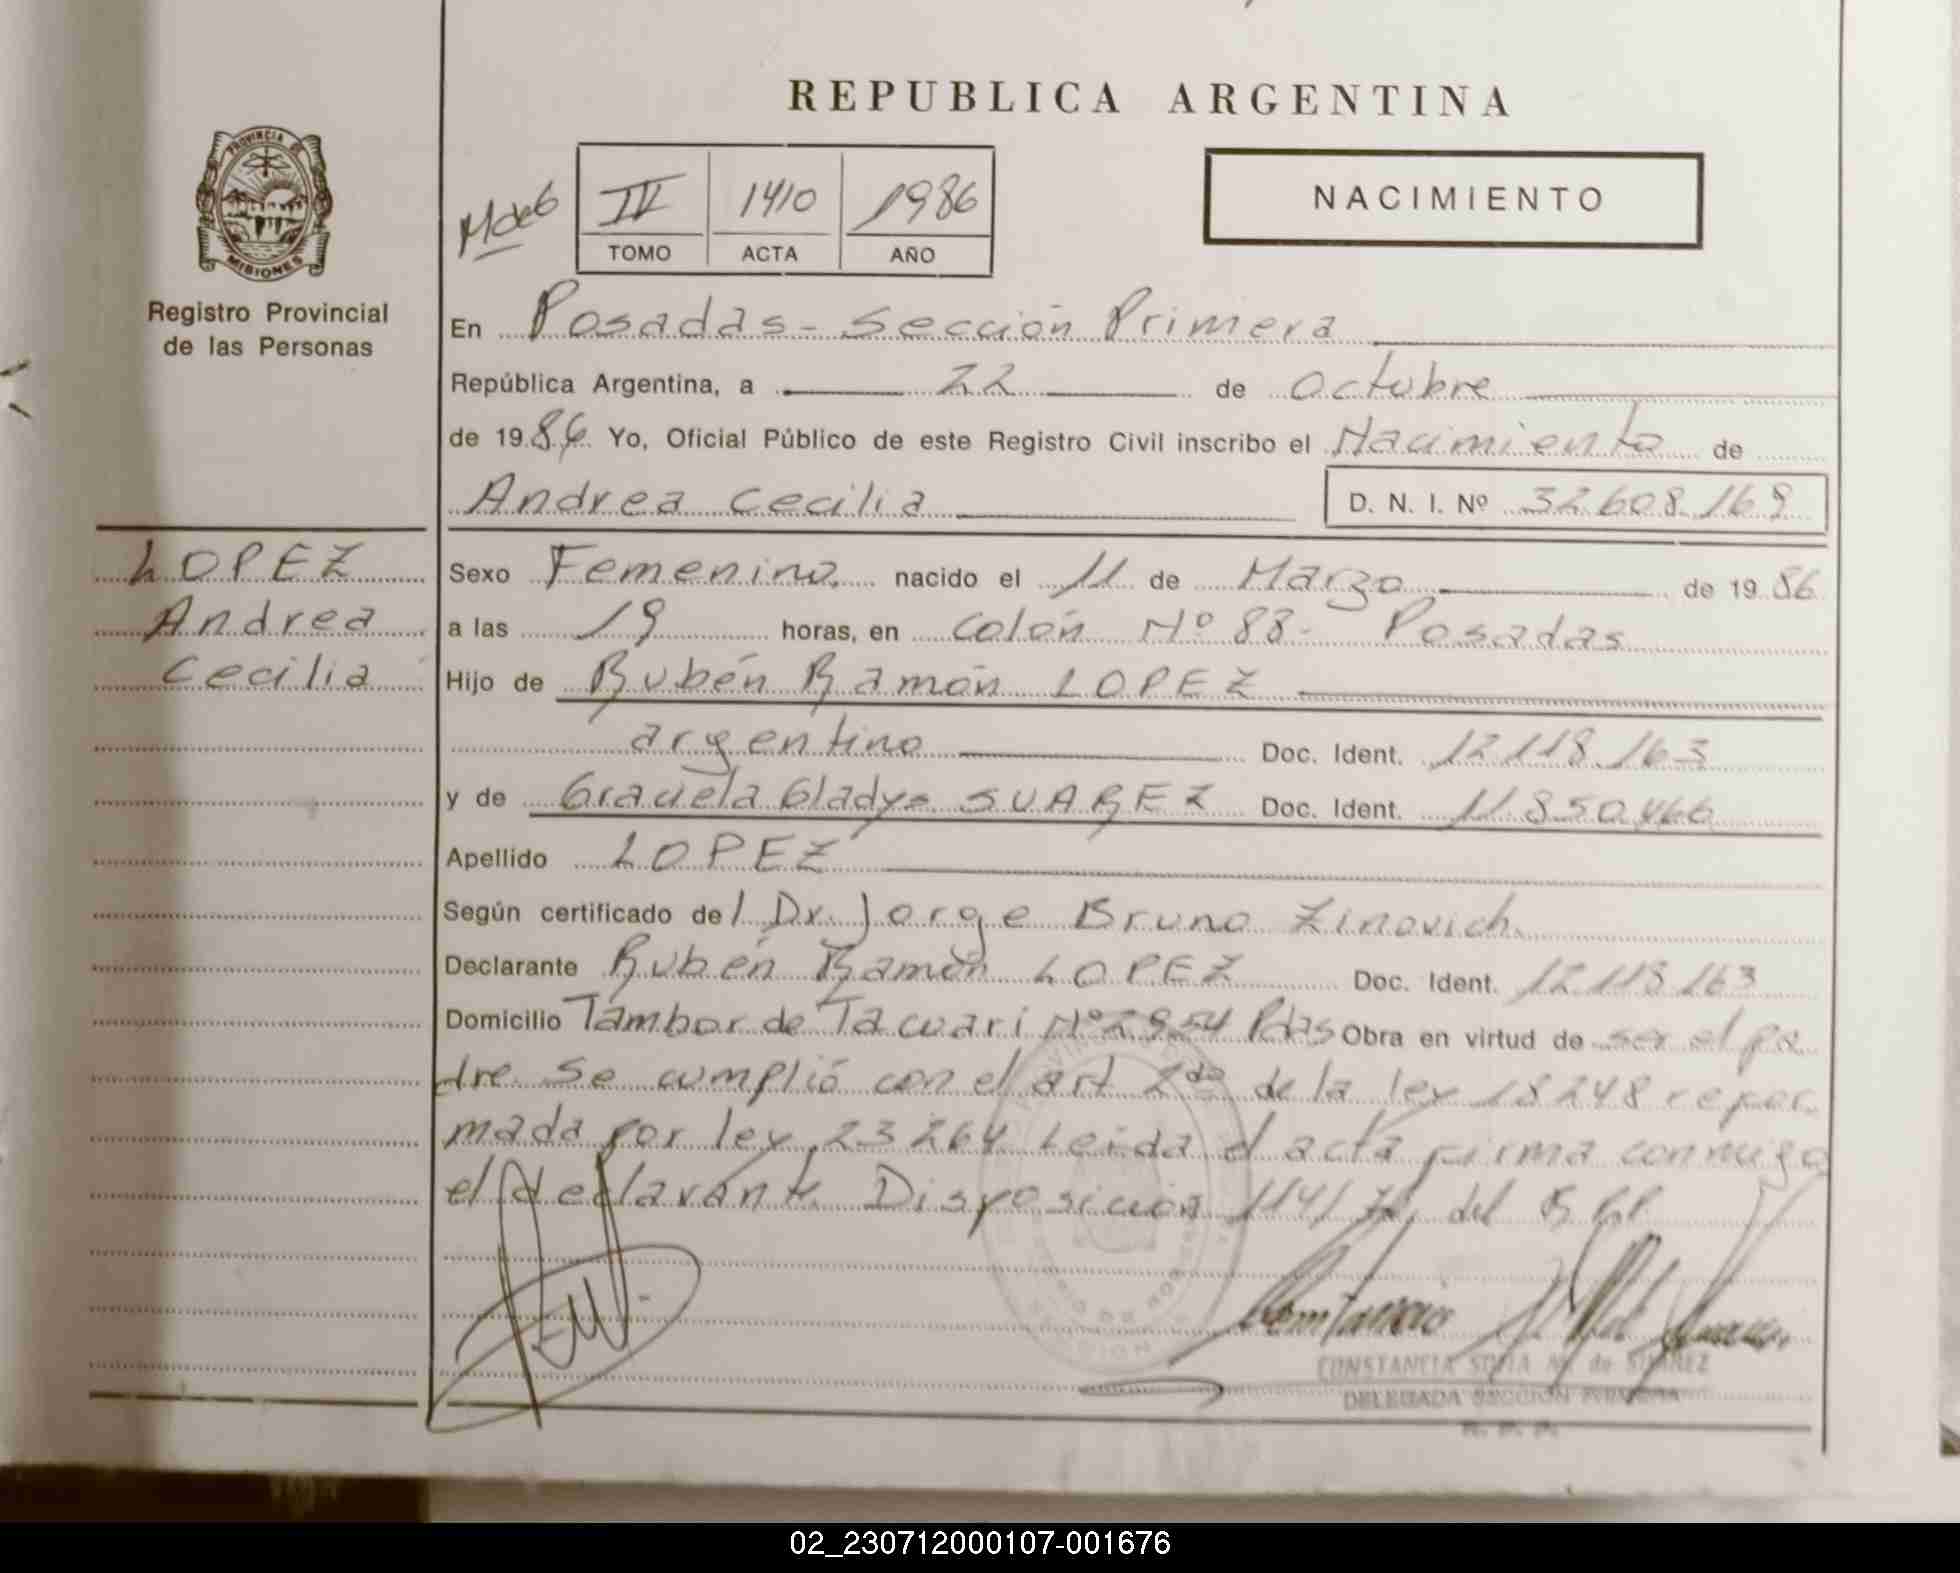 REPUBLICA ARGENTINA
PROVINCIA DE
MISIONES
Registro Provincial
de las Personas
IV 1410 1986
TOMO ACTA AÑO
NACIMIENTO
En Posadas - Sección Primera
República Argentina, a 22 de octubre
de 1986 Yo, Oficial Público de este Registro Civil inscribo el Nacimiento de
Andrea Cecilia D. N. I. Nº 32.608.169
LOPEZ
Andrea
Cecilia
Sexo Femenino. nacido el 11 de Marzo de 1986
a las 19 horas, en Colón Nº 88- Posadas
Hijo de Rubén Ramón LOPEZ
argentino Doc. Ident. 12.118.163
y de Graciela Gladys SUAREZ Doc. Ident. 11.850.466
Apellido LOPEZ
Según certificado del Dr. Jorge Bruno Zinovich.
Declarante Rubén Ramón LOPEZ Doc. Ident. 12.118.163
Domicilio Tambor de Tacuari Nº 2954 Pdas Obra en virtud de ser el pa
dre. Se cumplió con el art 2do de la ley 18248 refor
mada por ley 23264 Leida el acta firma conmigo
el declarante. Disposición 114/ del
CONSTANCIA SOFIA M. de SUAREZ
DELEGADA SECCION PRIMERA
R. P. P.
02_230712000107-001676